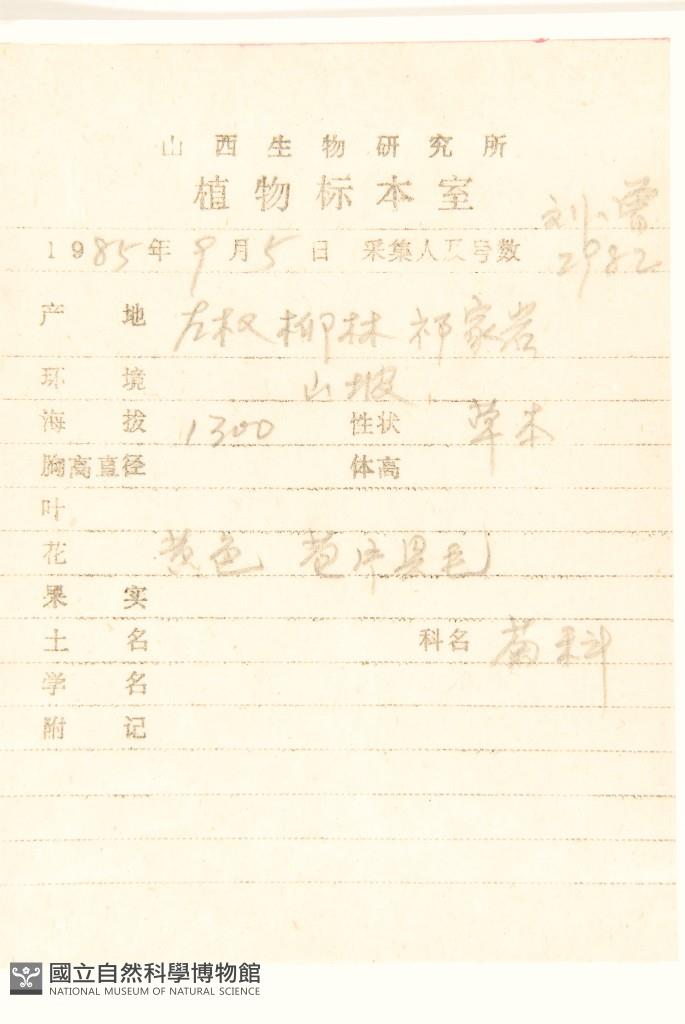 山西生物研究所
植物标本室
刘小曾
1985年9月5日 采集人及号数 2982
产地 左权 柳林 祁家岩
环境 山坡
海拔 1300 性状 草本
胸高直径 体高
叶
花 黄色 苞片具毛
果实
土名 科名 菊科
学名
附记
國立自然科學博物館
NATIONAL MUSEUM OF NATURAL SCIENCE